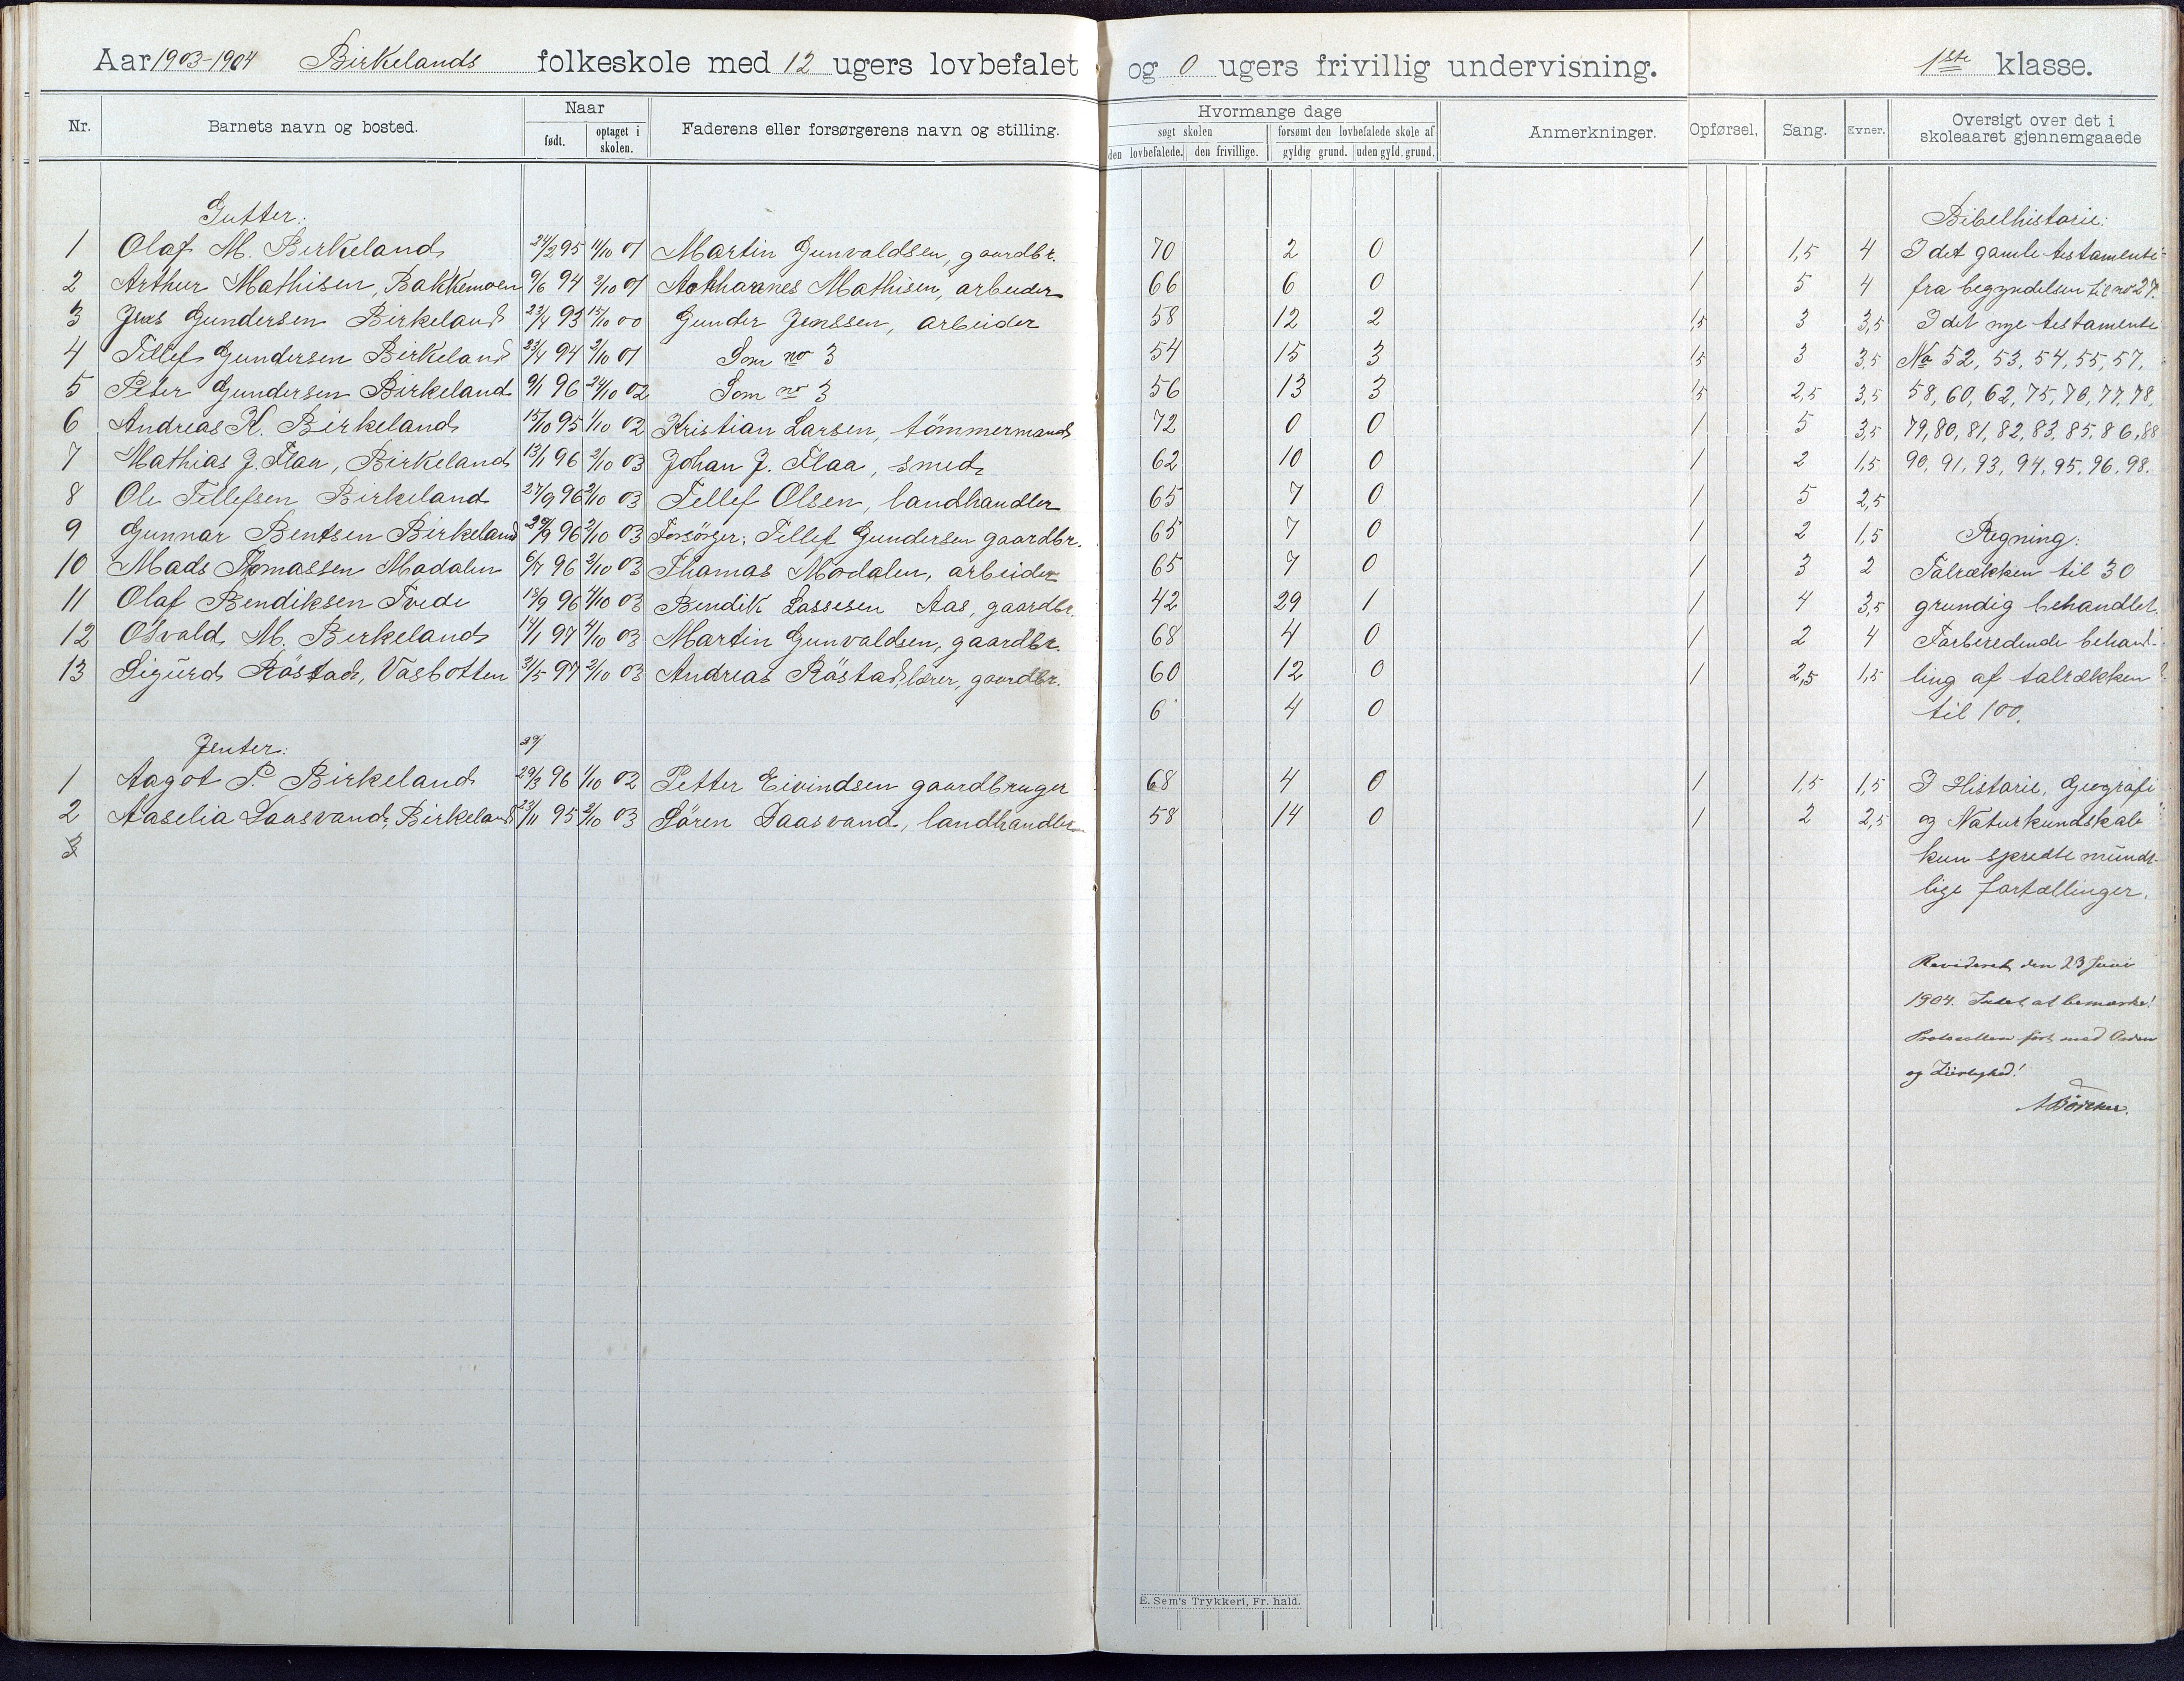 Aar 1903-1904 Birkelands folkeskole med 12 ugers lovbefalet og 0 ugers frivillig undervisning. 1ste klasse.
Nr. Barnets navn og bosted. Naar født. optaget i skolen. Faderens eller forsørgerens navn og stilling. Hvormange dage søgt skolen den lovbefalede. den frivillige. forsømt den lovbefalede skole af gyldig grund. uden gyld. grund. Anmerkninger. Opførsel. Sang. Evner. Oversigt over det i skoleaaret gjennemgaaede
Gutter: Bibelhistorie:
1 Olaf M. Birkeland 24/2 95 11/10 01 Martin Gunvaldsen, gaardbr. 70 2 0 1 1,5 4 I det gamle testamente
2 Arthur Mathisen, Bakkemoen 9/6 94 2/10 01 Mathisen, arbeider 66 6 0 1 5 4 fra begyndelsen til no 27.
3 Jens Gundersen Birkeland 23/4 93 15/10 00 Gunder Jenssen, arbeider 58 12 2 1,5 3 3,5 I det nye testamente
4 Tellef Gundersen Birkeland 23/4 94 2/10 01 Som no 3 54 15 3 1,5 3 3,5 No 52, 53, 54, 55, 57,
5 Peter Gundersen Birkeland 9/1 96 24/10 02 Som no 3 56 13 3 1,5 2,5 3,5 58, 60, 62, 75, 76, 77, 78,
6 Andreas K. Birkeland 15/10 95 1/10 02 Kristian Larsen, tömmermand 72 0 0 1 5 3,5 79, 80, 81, 82, 83, 85, 86, 88
7 Mathias J. Flaa, Birkeland 13/1 96 2/10 03 Johan J. Flaa, smed 62 10 0 1 2 1,5 90, 91, 93, 94, 95, 96, 98.
8 Ole Tellefsen Birkeland 27/9 96 2/10 03 Tellef Olsen, landhandler 65 7 0 1 5 2,5
9 Gunnar Bentsen Birkeland 29/9 96 2/10 03 Forsörger: Tellef Gundersen gaardbr. 65 7 0 1 2 1,5 Regning:
10 Mads Thomassen Modalen 6/7 96 2/10 03 Thomas Modalen, arbeider 65 7 0 1 3 2 Talrækken til 30
11 Olaf Bendiksen Tvede 18/9 96 2/10 03 Bendik Lassesen Aas, gaardbr. 42 29 1 1 4 3,5 grundig behandlet.
12 Osvald M. Birkeland 14/1 97 4/10 03 Martin Gunvaldsen, gaardbr. 68 4 0 1 2 4 Forberedende behand-
13 Sigurd Röstad, Vasbotten 31/5 97 2/10 03 Andreas Röstad, lærer, gaardbr. 60 12 0 1 2,5 1,5 ling af talrækken
6 4 0 til 100.
Jenter: 29/
1 Aagot P. Birkeland 29/3 96 1/10 02 Petter Eivindsen gaardbruger 68 4 0 1 1,5 1,5 I Historie, Geografi
2 Aaselia Daasvand, Birkeland 23/11 95 2/10 03 Sören Daasvand, landhandler 58 14 0 1 2 2,5 og Naturkundskab
3 kun spredte mundt-
lige fortællinger.
Revideret den 23 Juni
1904. Intet at bemærke!
Protocollen ført med Orden
og
E. Sem's Trykkeri, Fr. hald.